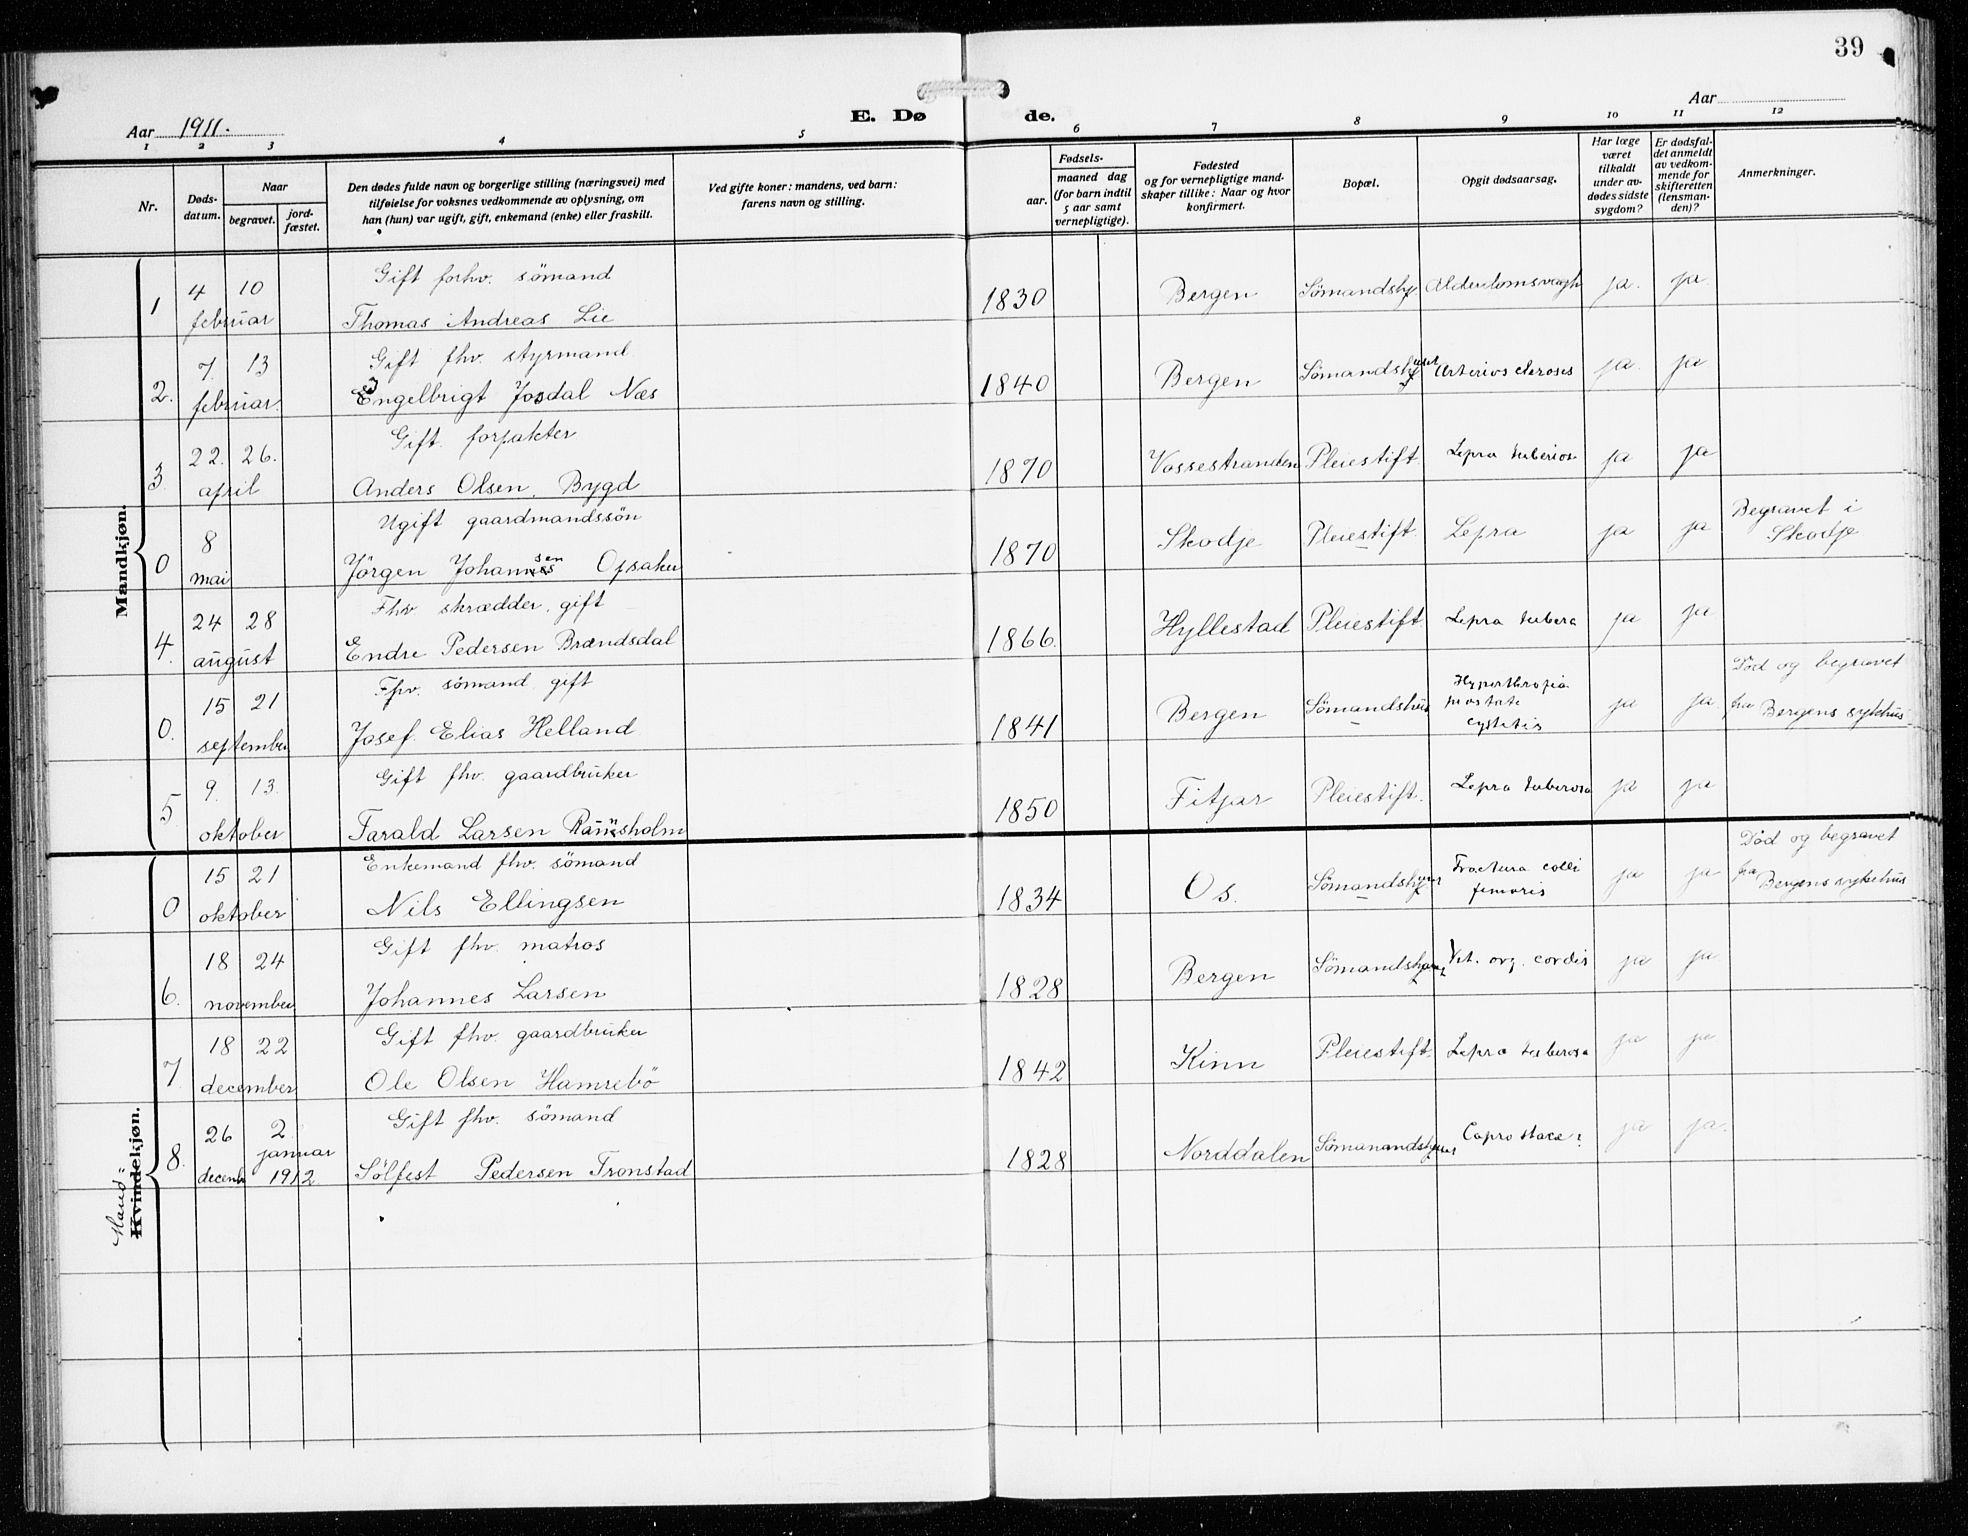 39
Aar 1911.
E. Døde.
Aar
1 2 3 4 5 6 7 8 9 10 11 12
Nr.
Døds-
datum.
Naar
begravet.
jord-
fæstet.
Den dødes fulde navn og borgerlige stilling (næringsvei) med
tilføielse for voksnes vedkommende av oplysning, om
han (hun) var ugift, gift, enkemand (enke) eller fraskilt.
Ved gifte koner: mandens, ved barn:
farens navn og stilling.
aar.
Fødsels-
maaned dag
(for barn indtil
5 aar samt
vernepligtige).
Fødested
og for vernepligtige mand-
skaper tillike: Naar og hvor
konfirmert.
Bopæl.
Opgit dødsaarsag.
Har læge
været
tilkaldt
under av-
dødes sidste
sygdom?
Er dødsfal-
det anmeldt
av vedkom-
mende for
skifteretten
(lensman-
den)?
Anmerkninger.
Mandkjøn.
Gift forhv. sömand
1 4 februar 10 Thomas Andreas Lie 1830 Bergen Sömandshj. Alderdomsvagh ja. ja
Gift fhv. styrmand
2. 7. februar. 13 Engelbrigt Josdal Næs 1840 Bergen ja. ja
Gift. forpakter
3. 22. april 26. Anders Olsen. Bygd 1870 Vossestranden Pleiestift. Lepra ja ja
Ugift gaardmandssön
0 8 mai Jörgen Johansen Opsaker 1870 Skodje Pleiestift. Lepra ja ja Begravet i
Skodje
Fhv skrædder. gift
4. 24 august 28 Endre Pedersen Brændsdal 1866. Hyllestad Pleiestift. Lepra tubera ja ja
Fhv. sömand. gift
0. 15 september 21 Josef. Elias Helland 1841 Bergen Sömandshus Hyperthropia
prostate
cystitis ja ja Död og begravet
fra Bergens sykehus
Gift fhv. gaardbruker
5 9. oktober 13. Tarald Larsen 1850 Fitjar Pleiestift. Lepra tuberosa ja ja
Kvindekjøn.
Mand-
Enkemand fhv. sömand
0 15 oktober 21 Nils Ellingsen 1834 Os. Fractura colli
femoris ja ja Død og begravet
fra Bergens sykehus
Gift fhv. matros
6. 18 november 24 Johannes Larsen 1828 Bergen Vit. org. cordis ja ja
Gift fhv. gaardbruker
7 18 december 22 Ole Olsen Hamrebö 1842 Kinn Pleiestift. Lepra tuberosa ja ja
Gift fhv. sömand
8. 26 decemb 2 januar 1912 Sølfest Pedersen Tronstad 1828 Norddalen ja ja.